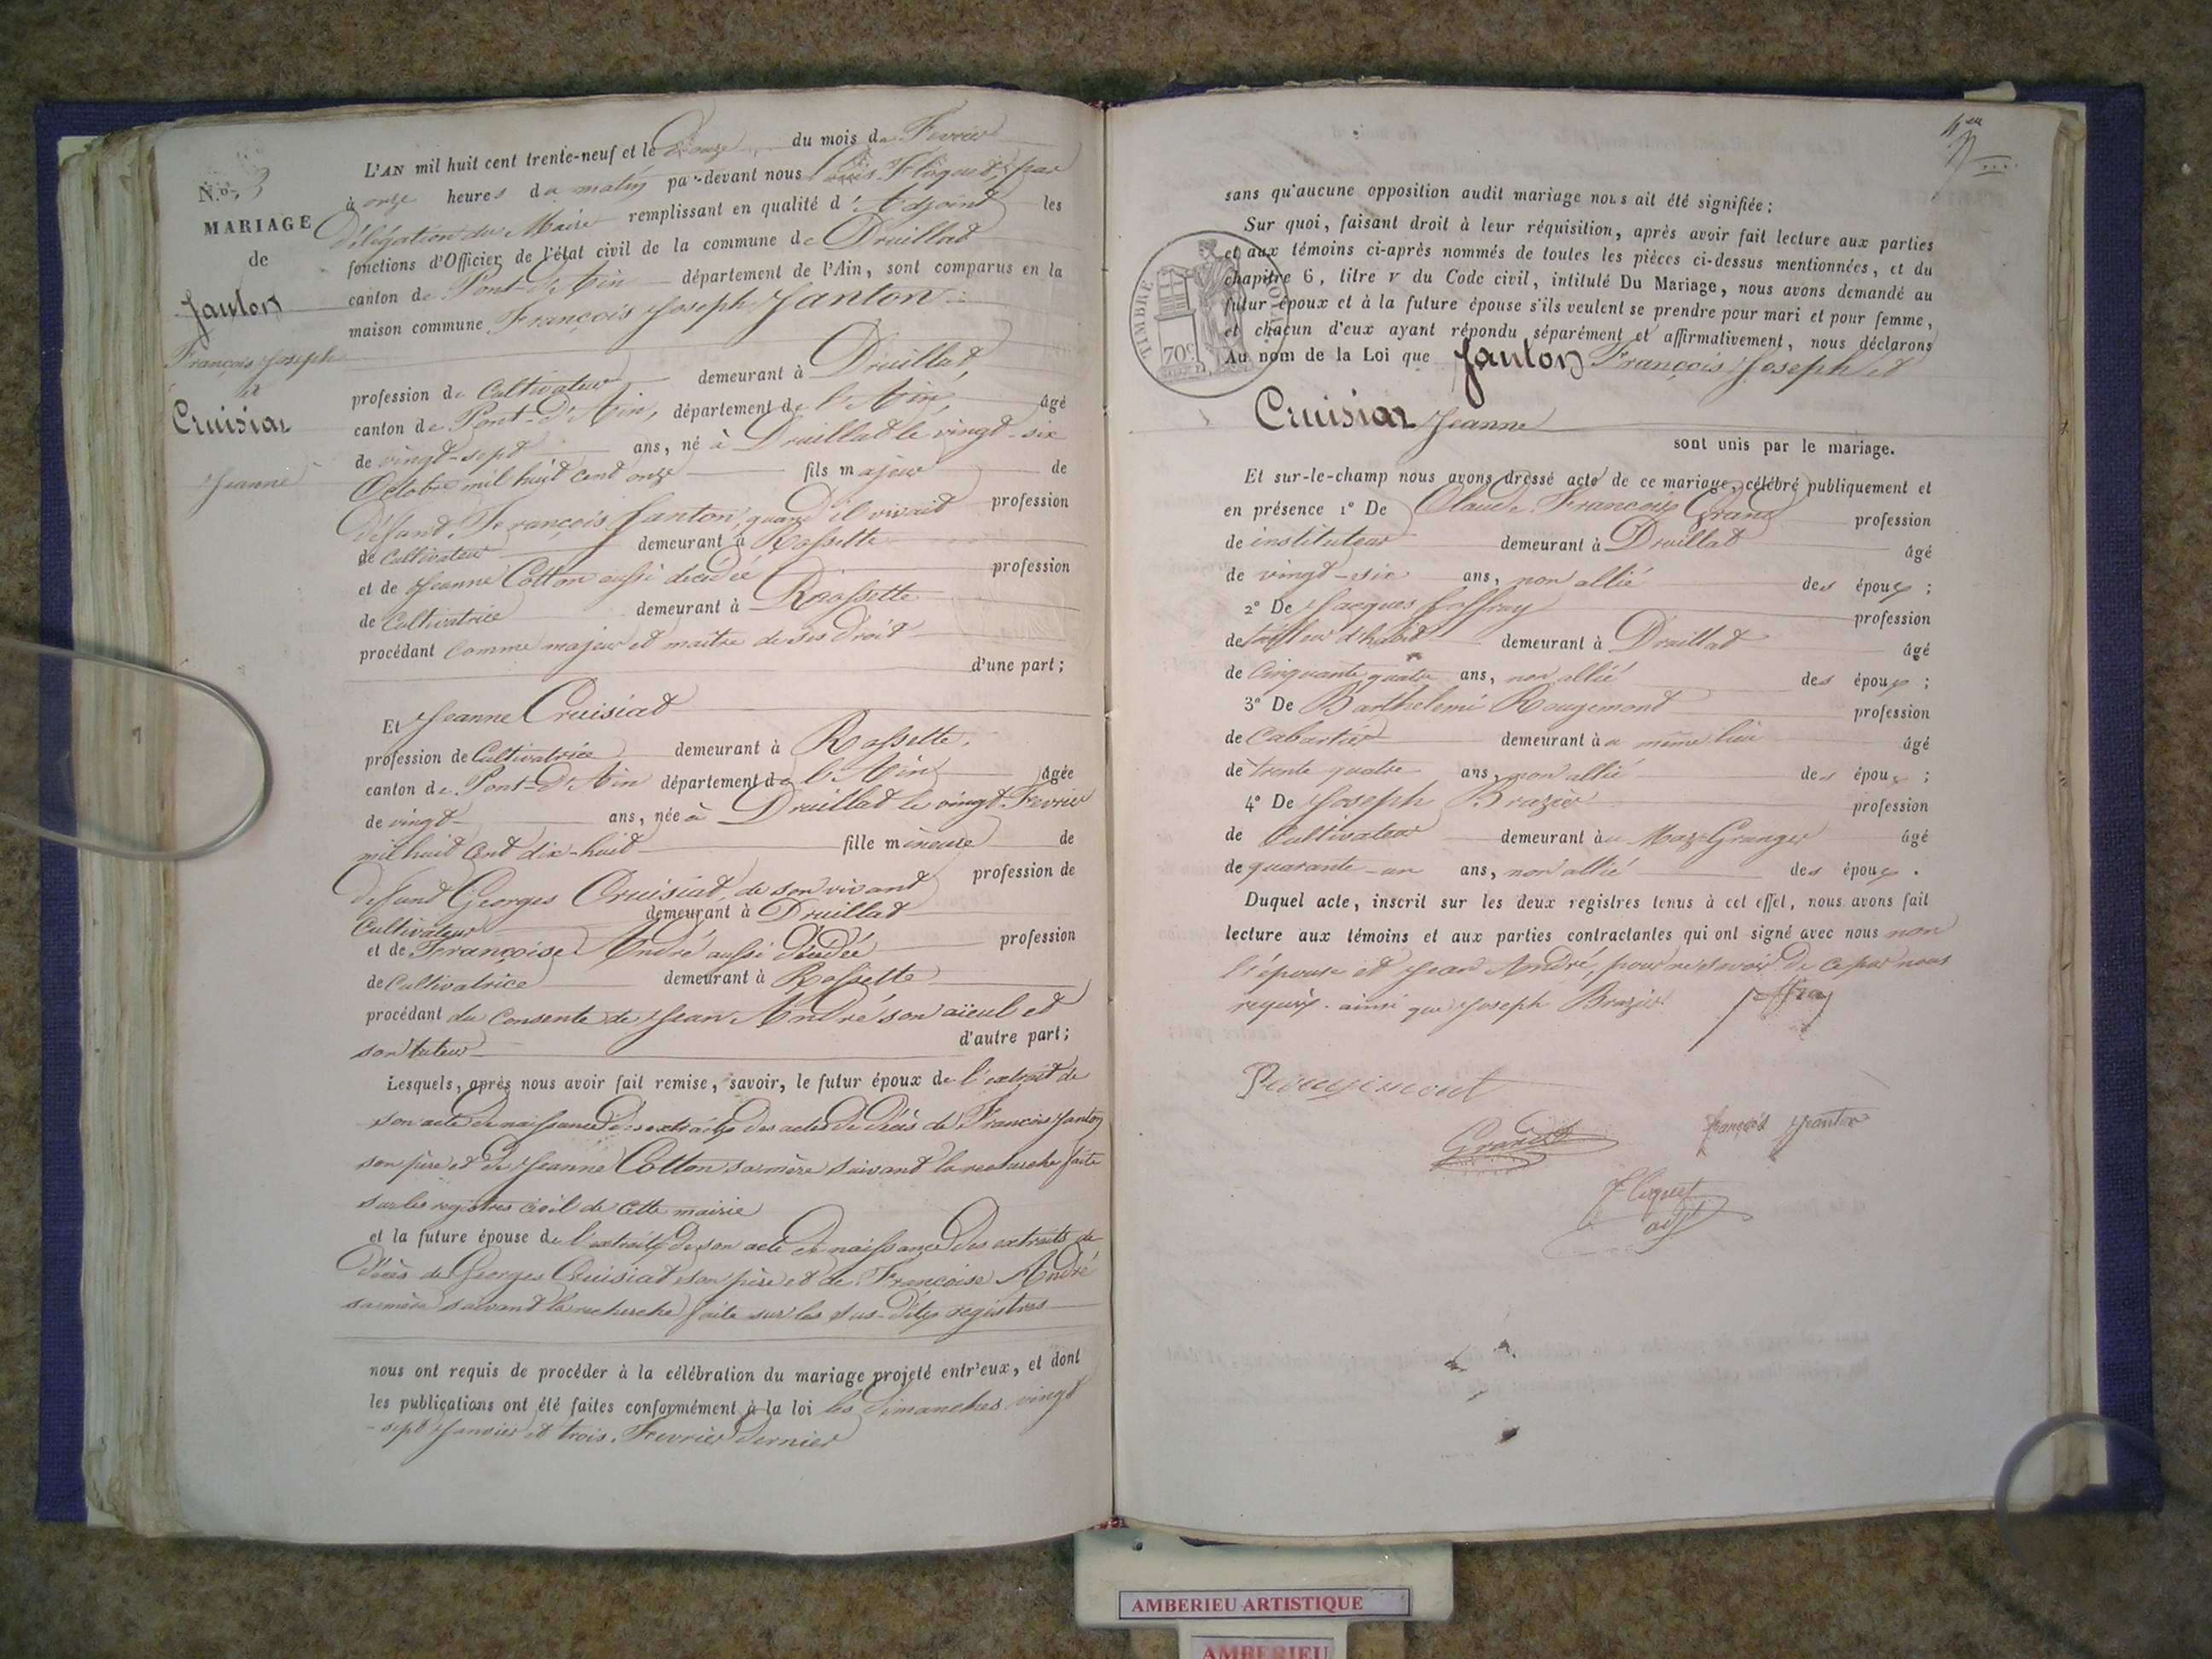 N.o 3
MARIAGE
de
Janton
François Joseph
et
Cruisiat
Jeanne
L'AN mil huit cent trente-neuf et le Douze du mois de Fevrier
à onze heures du matin par-devant nous Louis Floquet, par
délégation du Maire remplissant en qualité d'Adjoint les
fonctions d'Officier de l'état civil de la commune de Druillat
canton de Pont-D'Ain département de l'Ain, sont comparus en la
maison commune François Joseph Janton
profession de Cultivateur demeurant à Druillat,
canton de Pont-D'Ain, département de l'Ain, âgé
de vingt-sept ans, né à Druillat le vingt-six
Octobre mil huit cent onze fils majeur de
défunt François Janton, quand il vivait profession
de Cultivateur demeurant à Rossette
et de Jeanne Cotton aussi décédée profession
de Cultivatrice demeurant à Rossette
procédant comme majeur et maitre de ses droit
d'une part;
Et Jeanne Cruisiat
profession de Cultivatrice demeurant à Rossette,
canton de Pont-D'Ain département de l'Ain âgée
de vingt ans, née à Druillat le vingt Fevrier
mil huit cent dix-huit fille mineure de
défunt Georges Cruisiat, de son vivant profession de
Cultivateur demeurant à Druillat
et de Françoise André aussi décédée profession
de Cultivatrice demeurant à Rossette
procédant du consente de Jean André son aïeul et
son tuteur d'autre part;
Lesquels, après nous avoir fait remise, savoir, le futur époux de l'extrait de
son acte de naissance des extraits des actes de décès de François Janton
son père et de Jeanne Cotton sa mère suivant la recherche faite
sur les registres civil de cette mairie
et la future épouse de l'extrait de son acte de naissance des extraits de
décès de Georges Cruisiat son père et de Françoise André
sa mère suivant la recherche faite sur les sus-dites registres
nous ont requis de procéder à la célébration du mariage projeté entr'eux, et dont
les publications ont été faites conformément à la loi les dimanches vingt
-sept Janvier et trois Fevrier dernier
sans qu'aucune opposition audit mariage nous ait été signifiée;
Sur quoi, faisant droit à leur réquisition, après avoir fait lecture aux parties
et aux témoins ci-après nommés de toutes les pièces ci-dessus mentionnées, et du
chapitre 6, titre V du Code civil, intitulé Du Mariage, nous avons demandé au
futur époux et à la future épouse s'ils veulent se prendre pour mari et pour femme,
et chacun d'eux ayant répondu séparément et affirmativement, nous déclarons
Au nom de la Loi que Janton François Joseph et
Cruisiat Jeanne
sont unis par le mariage.
TIMBRE ROYAL
70c
Et sur-le-champ nous avons dressé acte de ce mariage, célébré publiquement et
en présence 1º De Claude François Grand profession
de instituteur demeurant à Druillat âgé
de vingt-six ans, non allié des époux;
2º De Jacques Joffray profession
de tailleur d'habit demeurant à Druillat âgé
de Cinquante quatre ans, non allié des époux;
3º De Barthelemi Rougemont profession
de Cabartier demeurant à u même lieu âgé
de trente quatre ans, non allié des époux;
4º De Joseph Brazier profession
de Cultivateur demeurant à u Maz-Granger âgé
de quarante-un ans, non allié des époux.
Duquel acte, inscrit sur les deux registres tenus à cet effet, nous avons fait
lecture aux témoins et aux parties contractantes qui ont signé avec nous non
l'épouse et Jean André, pour ne savoir de ce par nous
requis. ainsi que Joseph Brazier
Rougimont
Grand
françois Jeanton
Floquet
adjt
AMBERIEU ARTISTIQUE
AMBERIEU